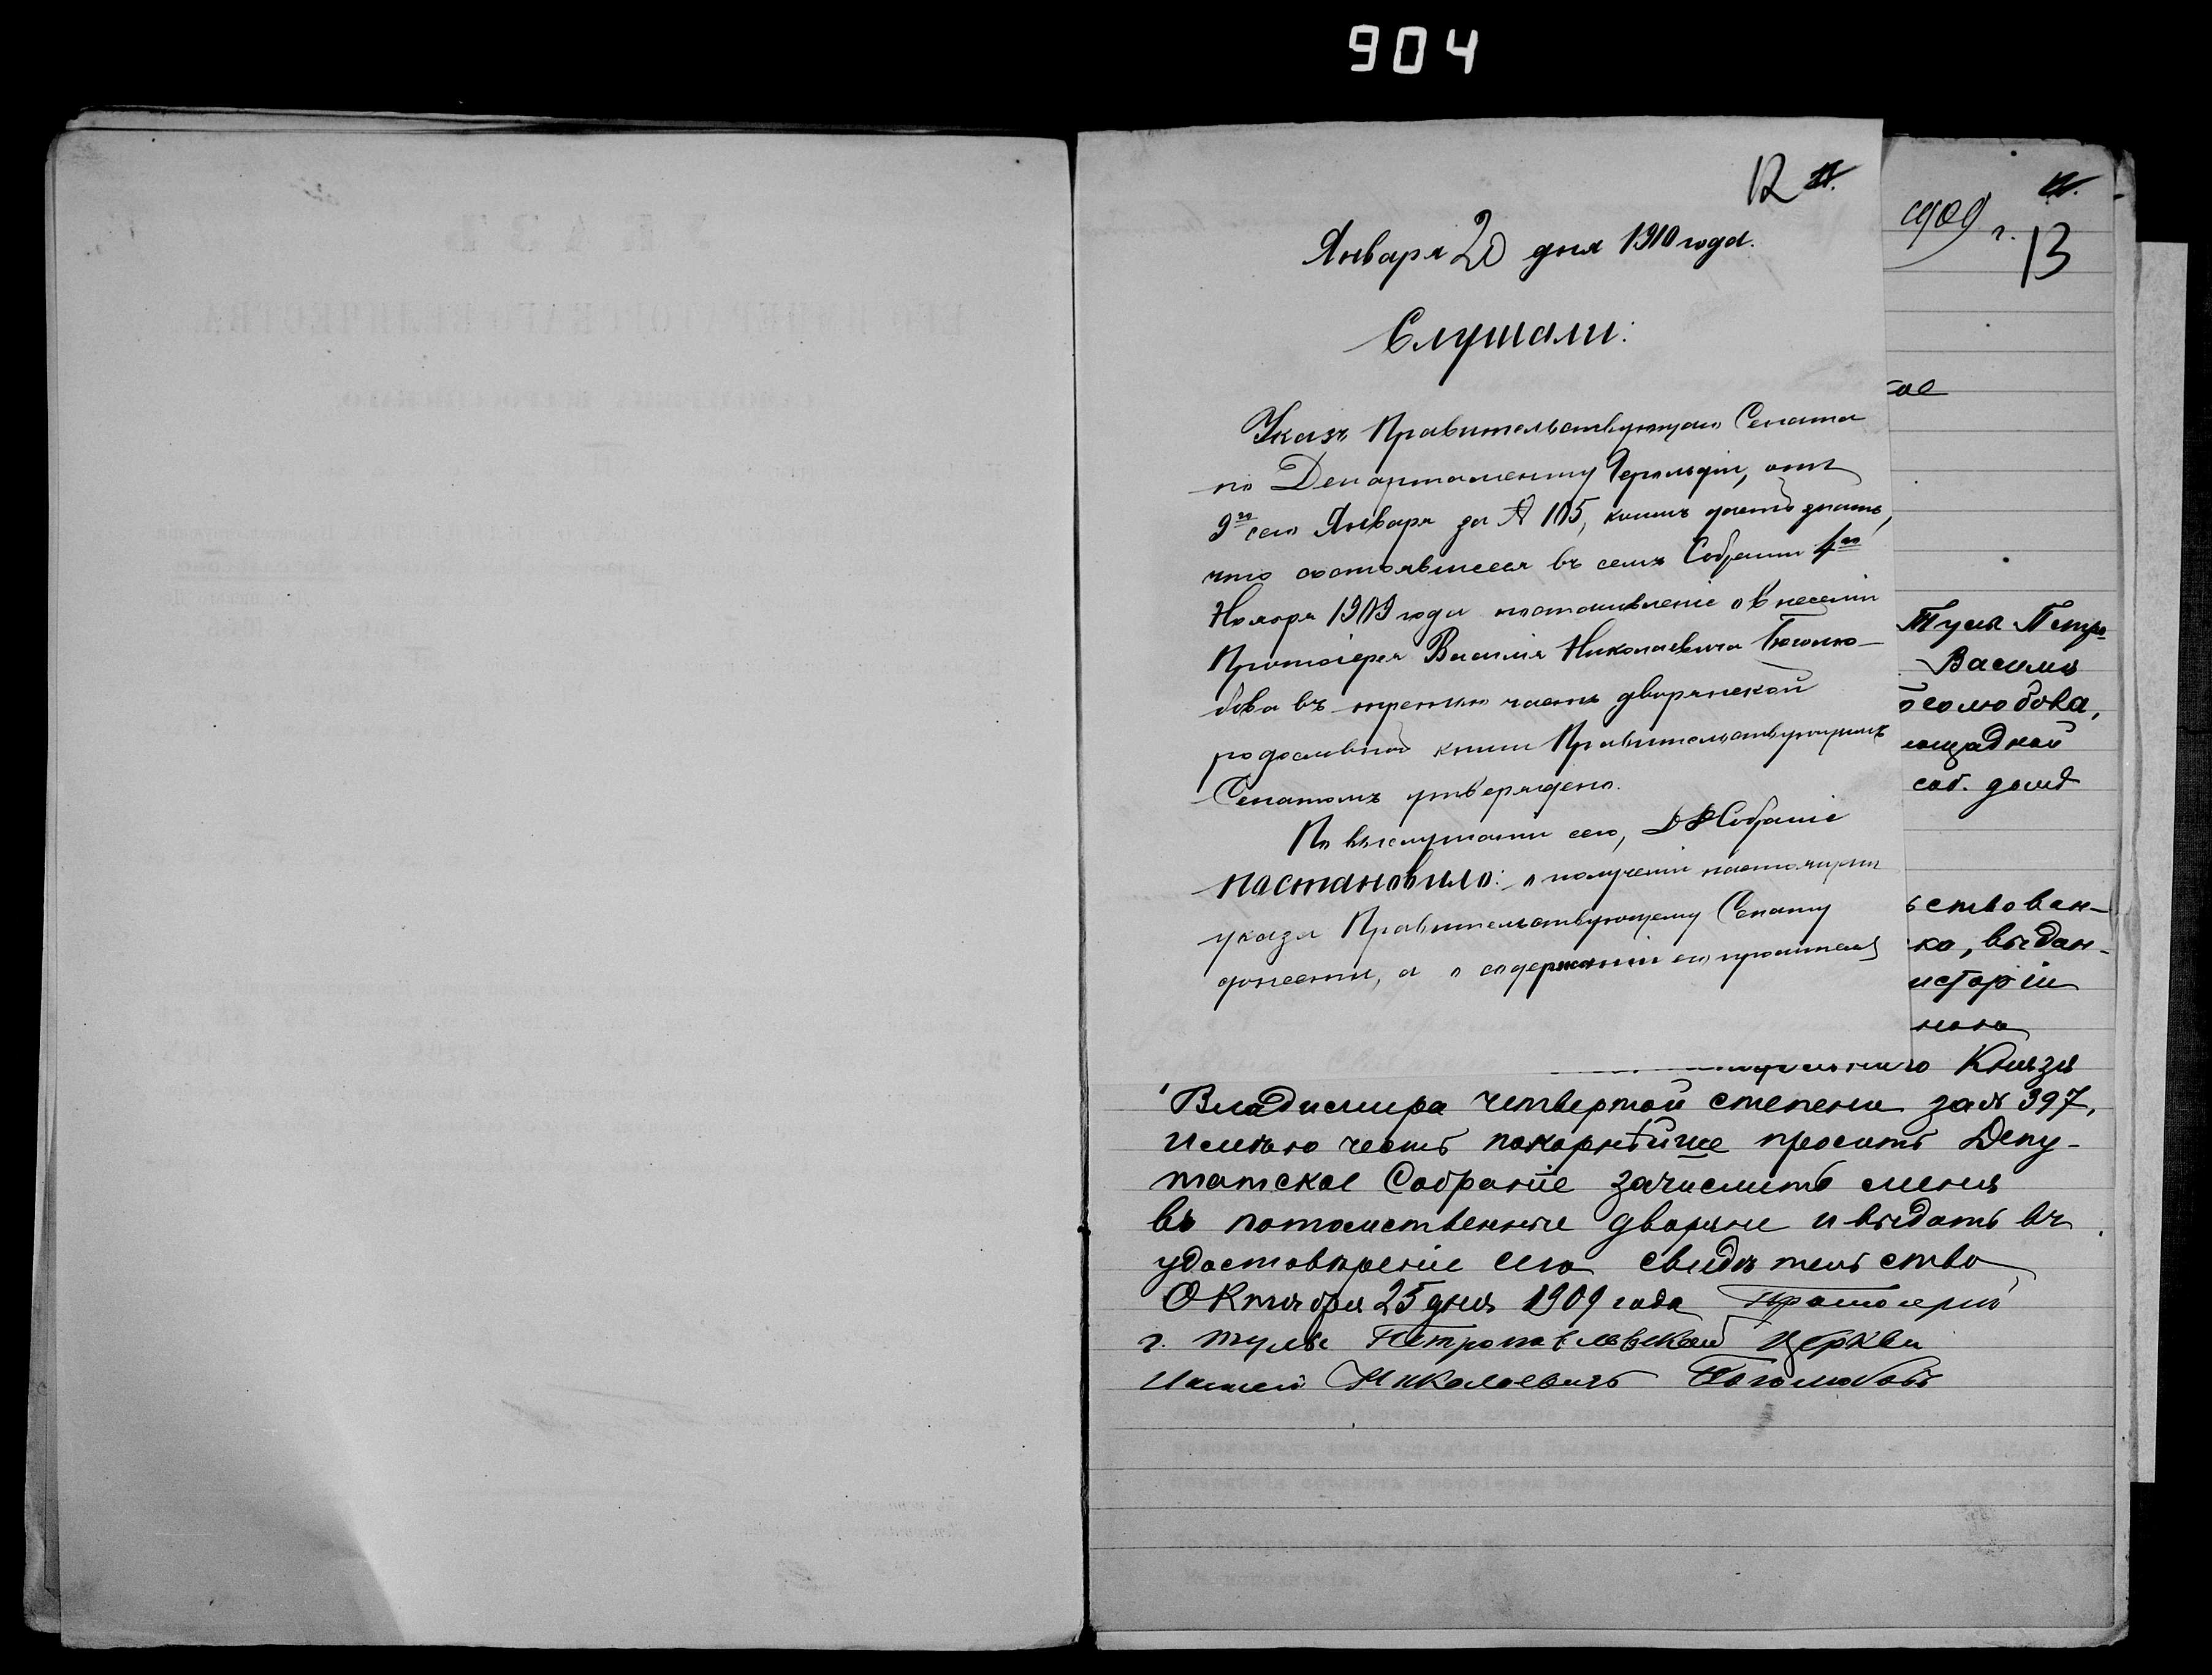 904
12
Января 20 дня 1910 года.
Слушали:
Указъ Правительствующаго Сената
по Департаменту Герольдіи, отъ
9го сего Января за № 105, коимъ даетъ знать,
что состоявшееся въ семъ Собраніи 4го
Ноября 1909 года постановленіе о внесеніи
Протоіерея Василія Николаевича Боголю-
бова въ третью часть дворянской
родословной книги Правительствующимъ
Сенатомъ утверждено.
По выслушаніи сего, Собраніе
постановило: о полученіи настоящаго
указа Правительствующему Сенату
донести, а о содержаніи его просителя
1909 г.
13
ое
Тула Петро
Василия
боголюбова,
лощадной
соб. домъ
ьствован-
ко, выдан-
исторіи
Князя
Владимира четвертой степени за № 397,
имѣю честь покорнѣйше просить Депу-
татское Собраніе зачислить меня
въ потомственные дворяне и выдать въ
удостовѣреніе сего свидѣтельство
Октября 25 дня 1909 года Протоіерей
г. Тулы Петропавловской церкви
Николаевичъ Боголюбовъ